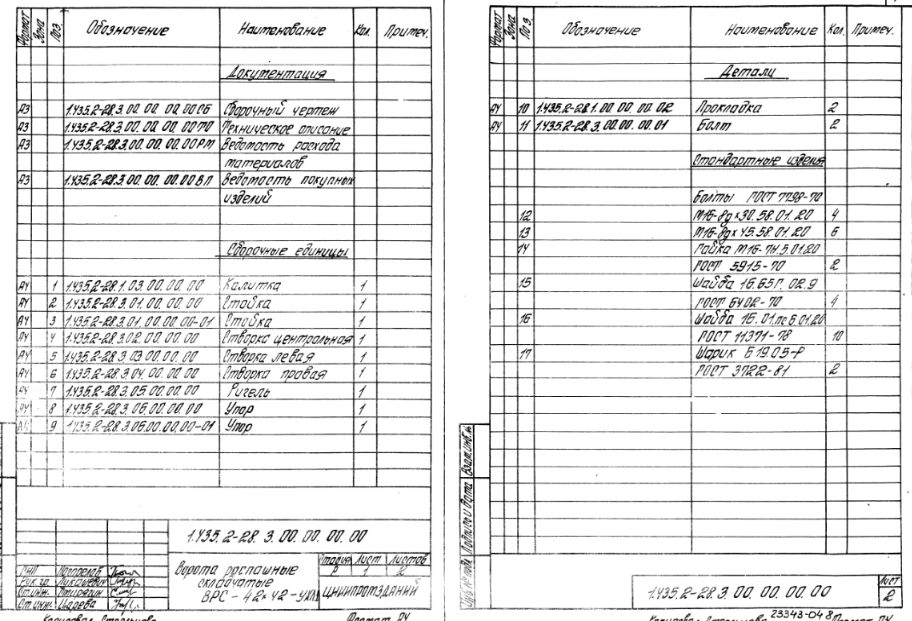 Формат Зона Поз. Обозначение Наименование Кол. Примеч.
Документация
А3 1.435.2-28.3.00.00.00.00СБ Сборочный чертеж
А3 1.435.2-28.3.00.00.00.00ТО Техническое описание
А3 1.435.2-28.3.00.00.00.00РМ Ведомость расхода
материалов
А3 1.435.2-28.3.00.00.00.00ВП Ведомость покупных
изделий
Сборочные единицы
А4 1 1.435.2-28.1.03.00.00.00 Калитка 1
А4 2 1.435.2-28.3.01.00.00.00 Стойка 1
А4 3 1.435.2-28.3.01.00.00.00-01 Стойка 1
А4 4 1.435.2-28.3.02.00.00.00 Створка центральная 1
А4 5 1.435.2-28.3.03.00.00.00 Створка левая 1
А4 6 1.435.2-28.3.04.00.00.00 Створка правая 1
А4 7 1.435.2-28.3.05.00.00.00 Ригель 1
А4 8 1.435.2-28.3.06.00.00.00 Упор 1
А4 9 1.435.2-28.3.06.00.00.00-01 Упор 1
1.435.2-28.3.00.00.00.00
Ворота распашные
складчатые
ВРС - 42х42-УХЛ1
Стадия Лист Листов
Р 1 2
ЦНИИПРОМЗДАНИЙ
ГИП
Рук. гр. Лукашевич
Ст. инж.
Ст. инж. Царева
Копировал Формат А4
Формат Зона Поз. Обозначение Наименование Кол. Примеч.
Детали
А4 10 1.435.2-28.1.00.00.00.02 Прокладка 2
А4 11 1.435.2-28.3.00.00.00.01 Болт 2
Стандартные изделия
Болты ГОСТ 7798-70
12 М16-8gх30.58.01.20 4
13 М16-8gх45.58.01.20 6
14 Гайка М16-7Н.5.01.20
ГОСТ 5915-70 2
15 Шайба 16.65Г.02.9
ГОСТ 6402-70 4
16 Шайба 16.01.
ГОСТ 11371-78 10
17 Шарик Б 19.05-Р
ГОСТ 3722-81 2
Взам.инв.№
Подпись и дата
1.435.2-28.3.00.00.00.00
Лист
2
Копировал 23343-04 8 Формат А4